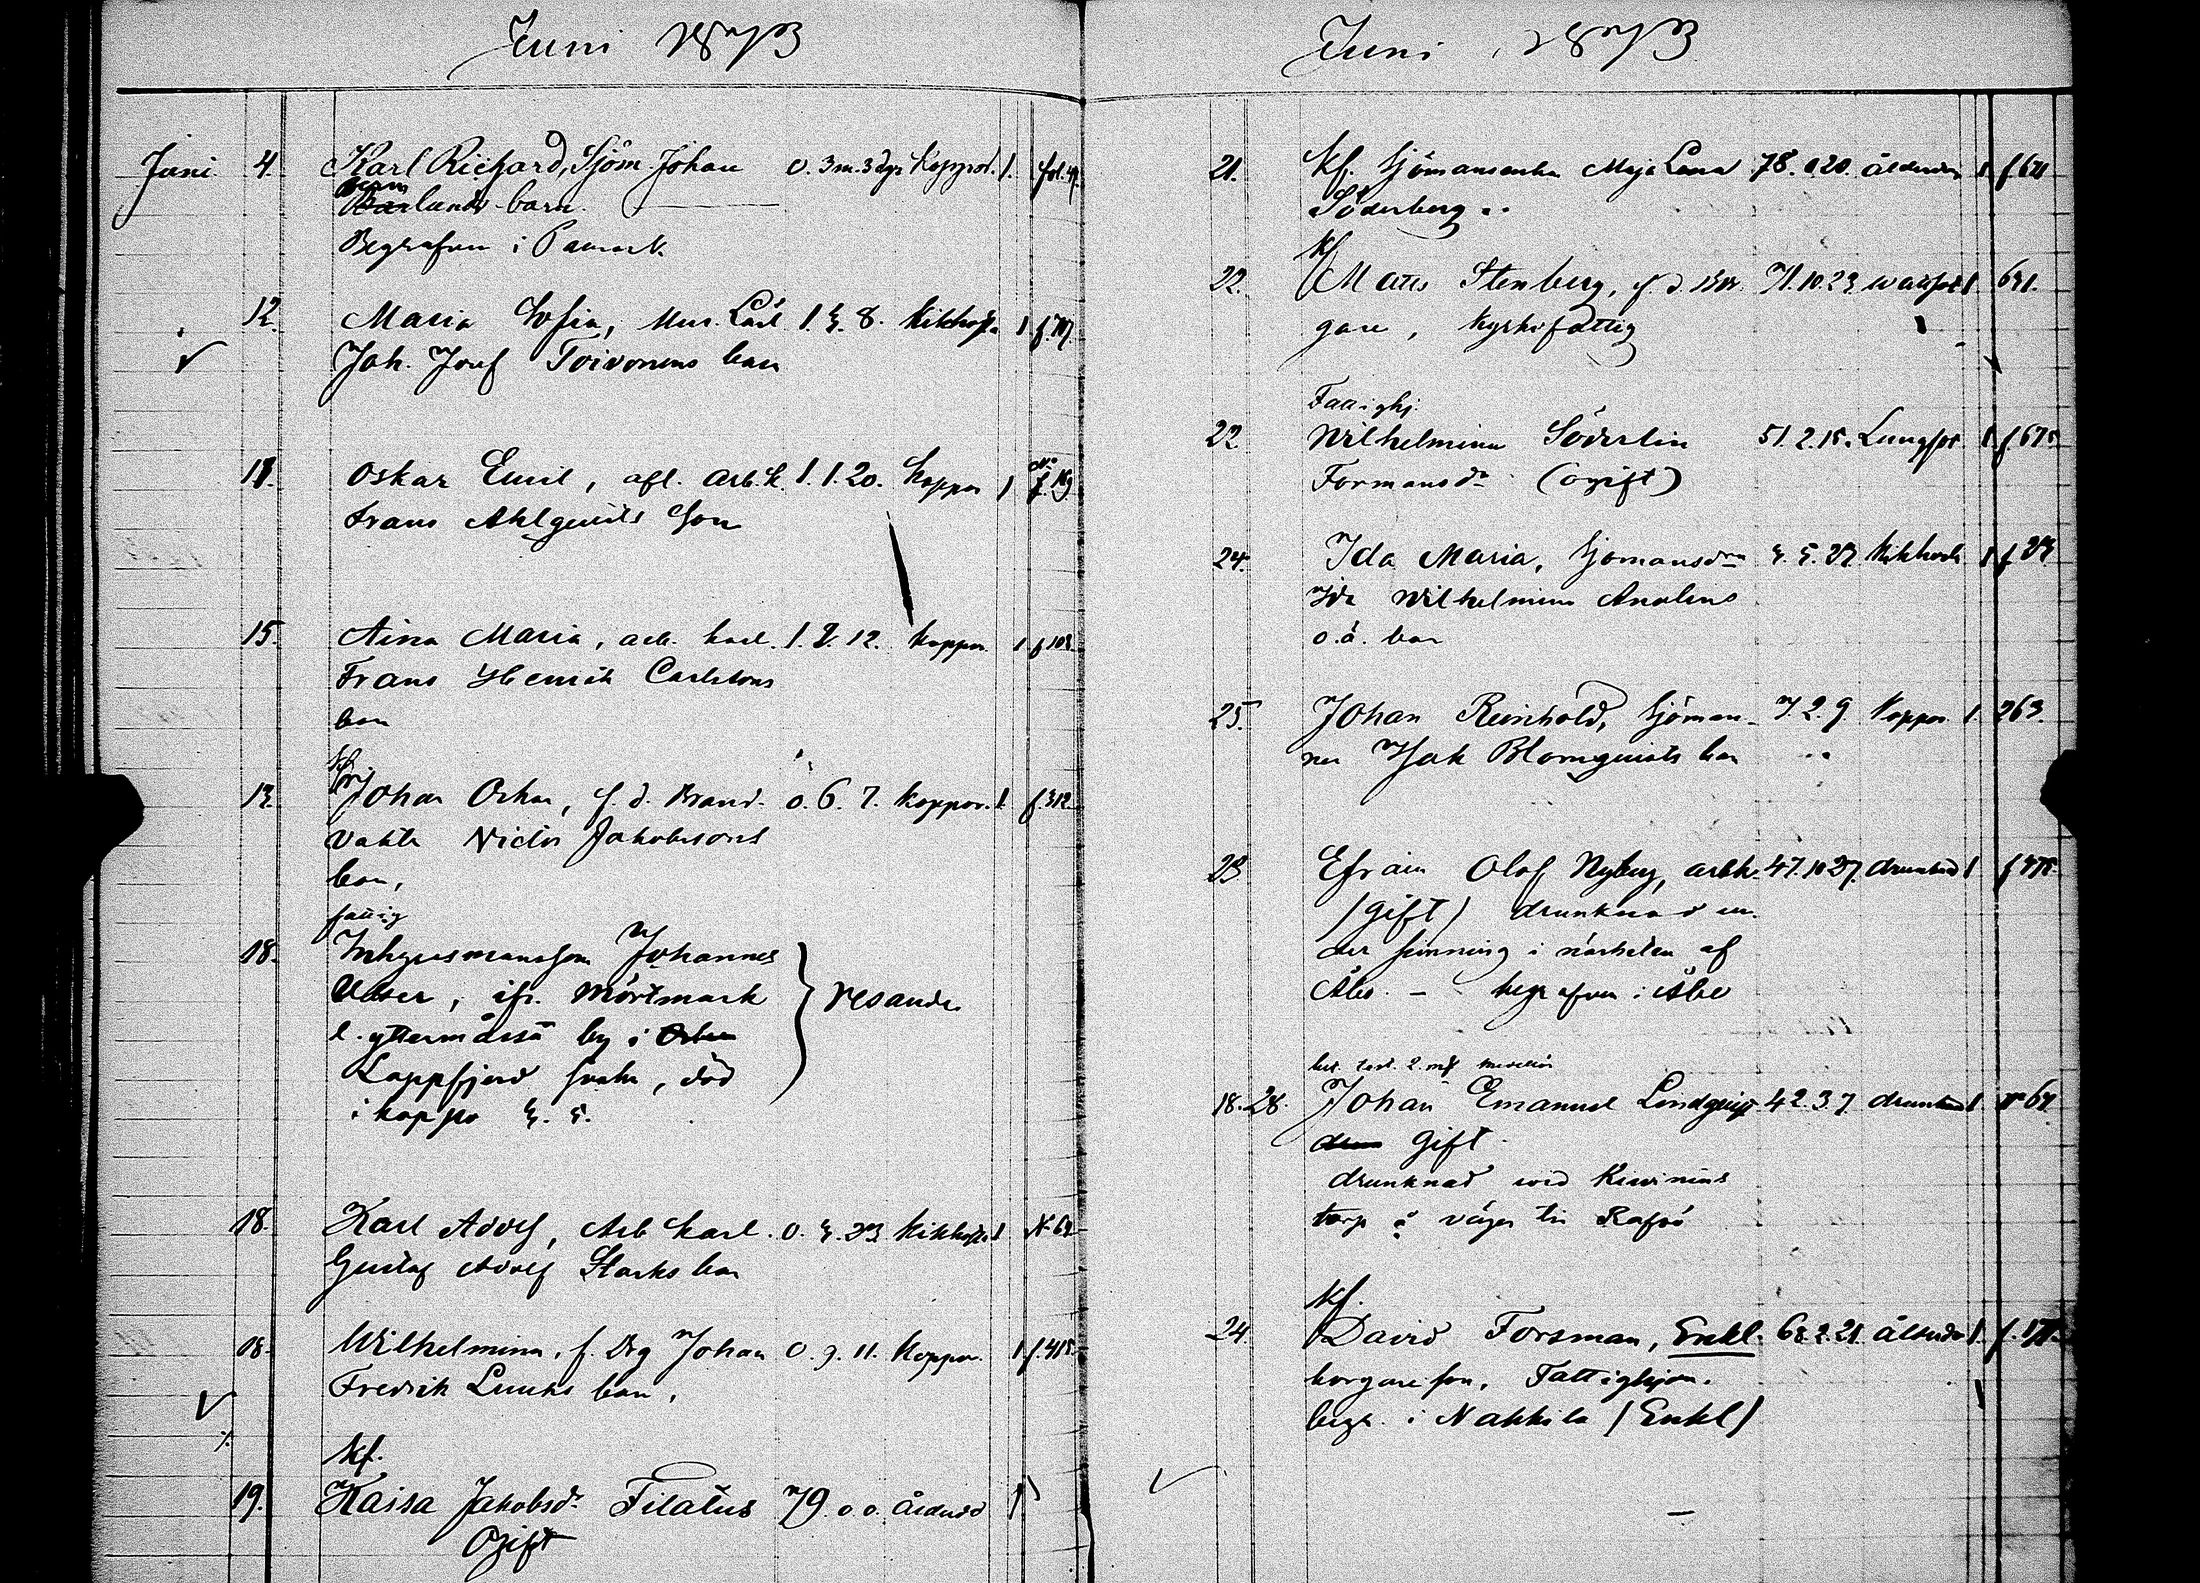 Juni 1873
Juni 4. Karl Richard, Sjöm. Johan 0. 3 m. 3 dgr Koppor. 1. fol. 41.
lunds barn.
Begrafven i Pamark
12. Maria Sofia, Mur. Lärl. 1. 3. 8. Kikhosta 1 f. 717.
Joh. Josef Toivonens barn
11. Oskar Emil, afl. arb. k. 1. 1. 20. Koppor 1 f. 169
Frans Ahlqvists Son
15. Aina Maria, arb. karl 1. 8. 12. Koppor. 1. f 108
Frans Henrik Carlstens
barn
kf
13. Johan Oskar, f. d. Brand- 0. 6. 7. Koppor. 1. f. 312.
vakts Victor Jakobssons
barn,
fattig
18. Inhysesmansson Johannes
ifr. Mörtmark
l. yttermåssä by i
Lappfjerd socken, död
i koppor 3. 5.
resande
18. Karl Adolf, Arb karl 0. 3. 23 Kikhosta 1 N 64
Gustaf Adolf Starks barn
18. Wilhelmina, f. Brg Johan 0. 9. 11. Koppor. 1. f. 415.
Fredrik Luuks barn,
Kf.
19. Kaisa Jakobsdr Filatus 79. 0 0. Ålderd 1
Ogift
Juni 1873
21. Kf. Sjömansenka Maja Lena 78. 0 20. ålderdom 1. f 621
Söderberg
Kf
22. Matts Stenberg, f. d. Bor- 71. 10. 23. wattsot 1. 631.
gare, Kyrkofattig
Fattighj.
22. Wilhelmina Söderlin 51. 2. 15. Lungsot 1. f. 675
Formansdr (ogift)
24. Ida Maria, Sjömansdrn 3. 5. 27. Kikhosta 1 f 23.
Ida Wilhelmina Anolins
o. ä. barn
25. Johan Reinhold, Sjöman- 7. 2. 9 Koppor. 1. 263.
nen Isak Blomqvists barn
23 Efraim Olof Nyberg, arbk. 47. 10 27. drunknad 1 f 375.
(gift) drunknad un-
der simning i närheten af
Åbo. - begrafven i Åbo
18. 28. Johan Emanuel Lindqvist 42. 3. 7. drunknad 1 N 67
gift.
drunknad wid Kiwinins
torp å vägen till Räfsö
Kf.
24. David Forsman, Enkl. 68. 2. 21. ålderdom 1. f. 171.
borgareson, Fattighjon.
begr. i Nakkila (Enkl)